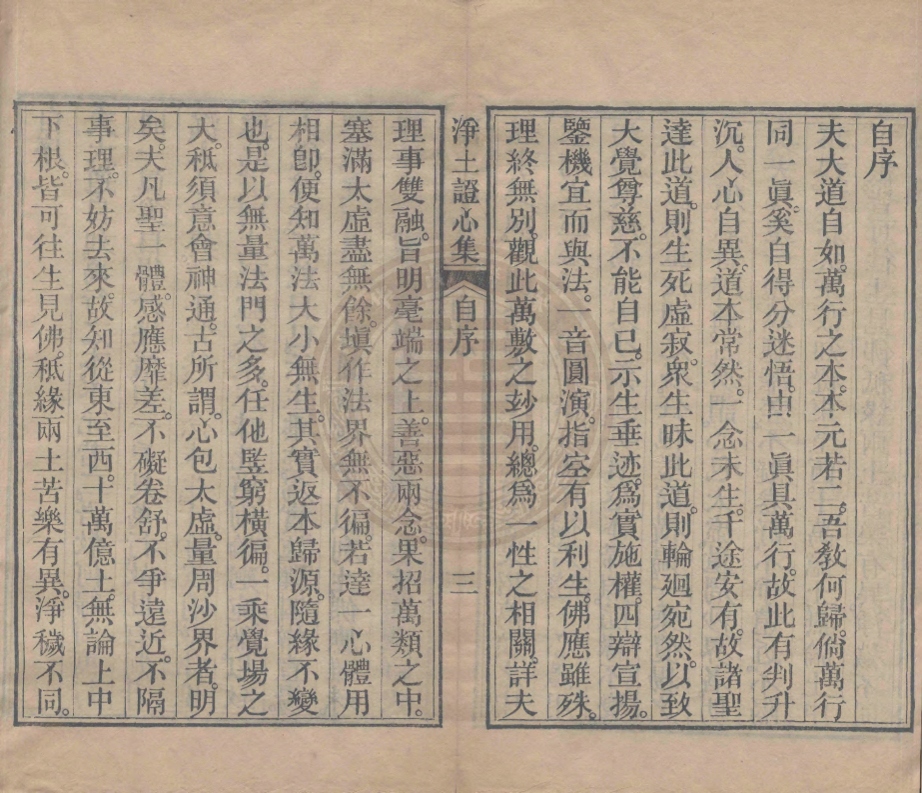 自序
夫大道自如。萬行之本。本元若二。吾教何歸。倘萬行
同一眞。奚自得分迷悟。由一眞具萬行。故此有判升
沉。人心自異。道本常然。一念未生。千途安有。故諸聖
達此道。則生死虛寂。衆生昧此道。則輪廻宛然。以致
大覺尊慈。不能自已。示生垂迹。爲實施權。四辯宣揚。
鑒機宜而與法。一音圓演。指空有以利生。佛應雖殊。
理終無別。觀此萬敷之玅用。總爲一性之相關。詳夫
淨土證心集
自序
三
理事雙融。旨明毫端之上。善惡兩念。果招萬類之中。
塞滿太虛盡無餘。塡作法界無不徧。若達一心體用
相卽。使知萬法大小無生。其實返本歸源。隨緣不變
也。是以無量法門之多。任他竪窮橫徧。一乘覺場之
大。秖須意會神通。古所謂。心包太虛。量周沙界者。明
矣。夫凡聖一體。感應靡差。不礙卷舒。不爭遠近。不隔
事理。不妨去來。故知從東至西。十萬億土。無論上中
下根。皆可往生見佛。秖緣兩土苦樂有異。淨穢不同。